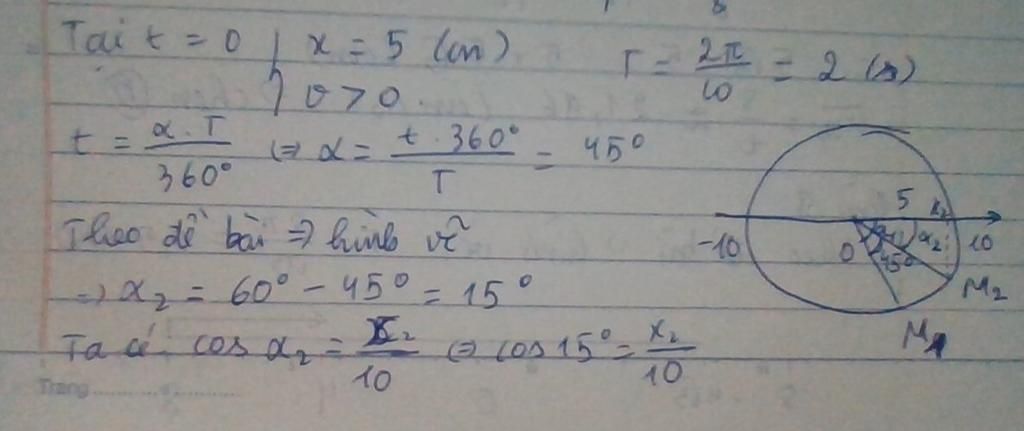 Tại t = 0 } x = 5 (cm)
v > 0
T = 2π/10 = 2 (s)
t = α.T/360° ⇔ α = t.360°/T = 45°
Theo đề bài ⇒ hình vẽ
⇒ α₂ = 60° − 45° = 15°
Ta có: cos α₂ = x₂/10 ⇔ cos 15° = x₂/10
5 x₂
-10 O 45° α₂ 10
M₂
M₁
Trang